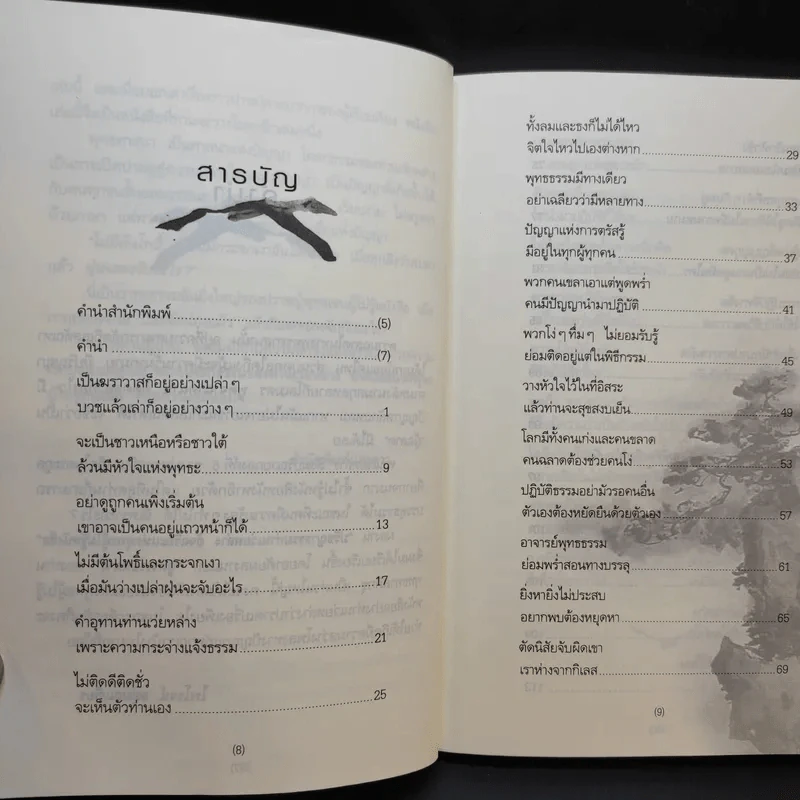 สารบัญ
คำนำสำนักพิมพ์ (5)
คำนำ (7)
เป็นฆราวาสก็อยู่อย่างเปล่า ๆ
บวชแล้วเล่าก็อยู่อย่างว่าง ๆ 1
จะเป็นชาวเหนือหรือชาวใต้
ล้วนมีหัวใจแห่งพุทธะ 9
อย่าดูถูกคนเพิ่งเริ่มต้น
เขาอาจเป็นคนอยู่แถวหน้าก็ได้ 13
ไม่มีต้นโพธิ์และกระจกเงา
เมื่อมันว่างเปล่าฝุ่นจะจับอะไร 17
คำอุทานท่านเว่ยหล่าง
เพราะความกระจ่างแจ้งธรรม 21
ไม่ติดดีติดชั่ว
จะเห็นตัวท่านเอง 25
(8)
ทั้งลมและธงก็ไม่ได้ไหว
จิตใจไหวไปเองต่างหาก 29
พุทธธรรมมีทางเดียว
อย่าเฉลียวว่ามีหลายทาง 33
ปัญญาแห่งการตรัสรู้
มีอยู่ในทุกผู้ทุกคน 37
พวกคนเขลาเอาแต่พูดพร่ำ
คนมีปัญญานำมาปฏิบัติ 41
พวกโง่ ๆ ทึ่ม ๆ ไม่ยอมรับรู้
ย่อมติดอยู่แต่ในพิธีกรรม 45
วางหัวใจไว้ในที่อิสระ
แล้วท่านจะสุขสงบเย็น 49
โลกมีทั้งคนเก่งและคนขลาด
คนฉลาดต้องช่วยคนโง่ 53
ปฏิบัติธรรมอย่ามัวรอคนอื่น
ตัวเองต้องหยัดยืนด้วยตัวเอง 57
อาจารย์พุทธธรรม
ย่อมพร่ำสอนทางบรรลุ 61
ยิ่งหายิ่งไม่ประสบ
อยากพบต้องหยุดหา 65
ตัดนิสัยจับผิดเขา
เราห่างจากกิเลส 69
(9)